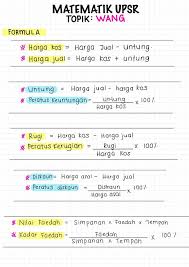 MATEMATIK UPSR
TOPIK: WANG
FORMULA
* Harga kos = Harga Jual - Untung
* Harga jual = Harga kos + untung
* Untung = Harga jual - harga kos
* Peratus Keuntungan = Untung / Harga kos × 100%
* Rugi = Harga kos - Harga jual
* Peratus Kerugian = Rugi / Harga kos × 100%
* Diskaun = Harga jual - harga diskaun
* Peratus diskaun = Diskaun / Harga asal × 100%
* Nilai Faedah = Simpanan × Faedah × Tempoh
* Kadar Faedah = Simpanan × Tempoh